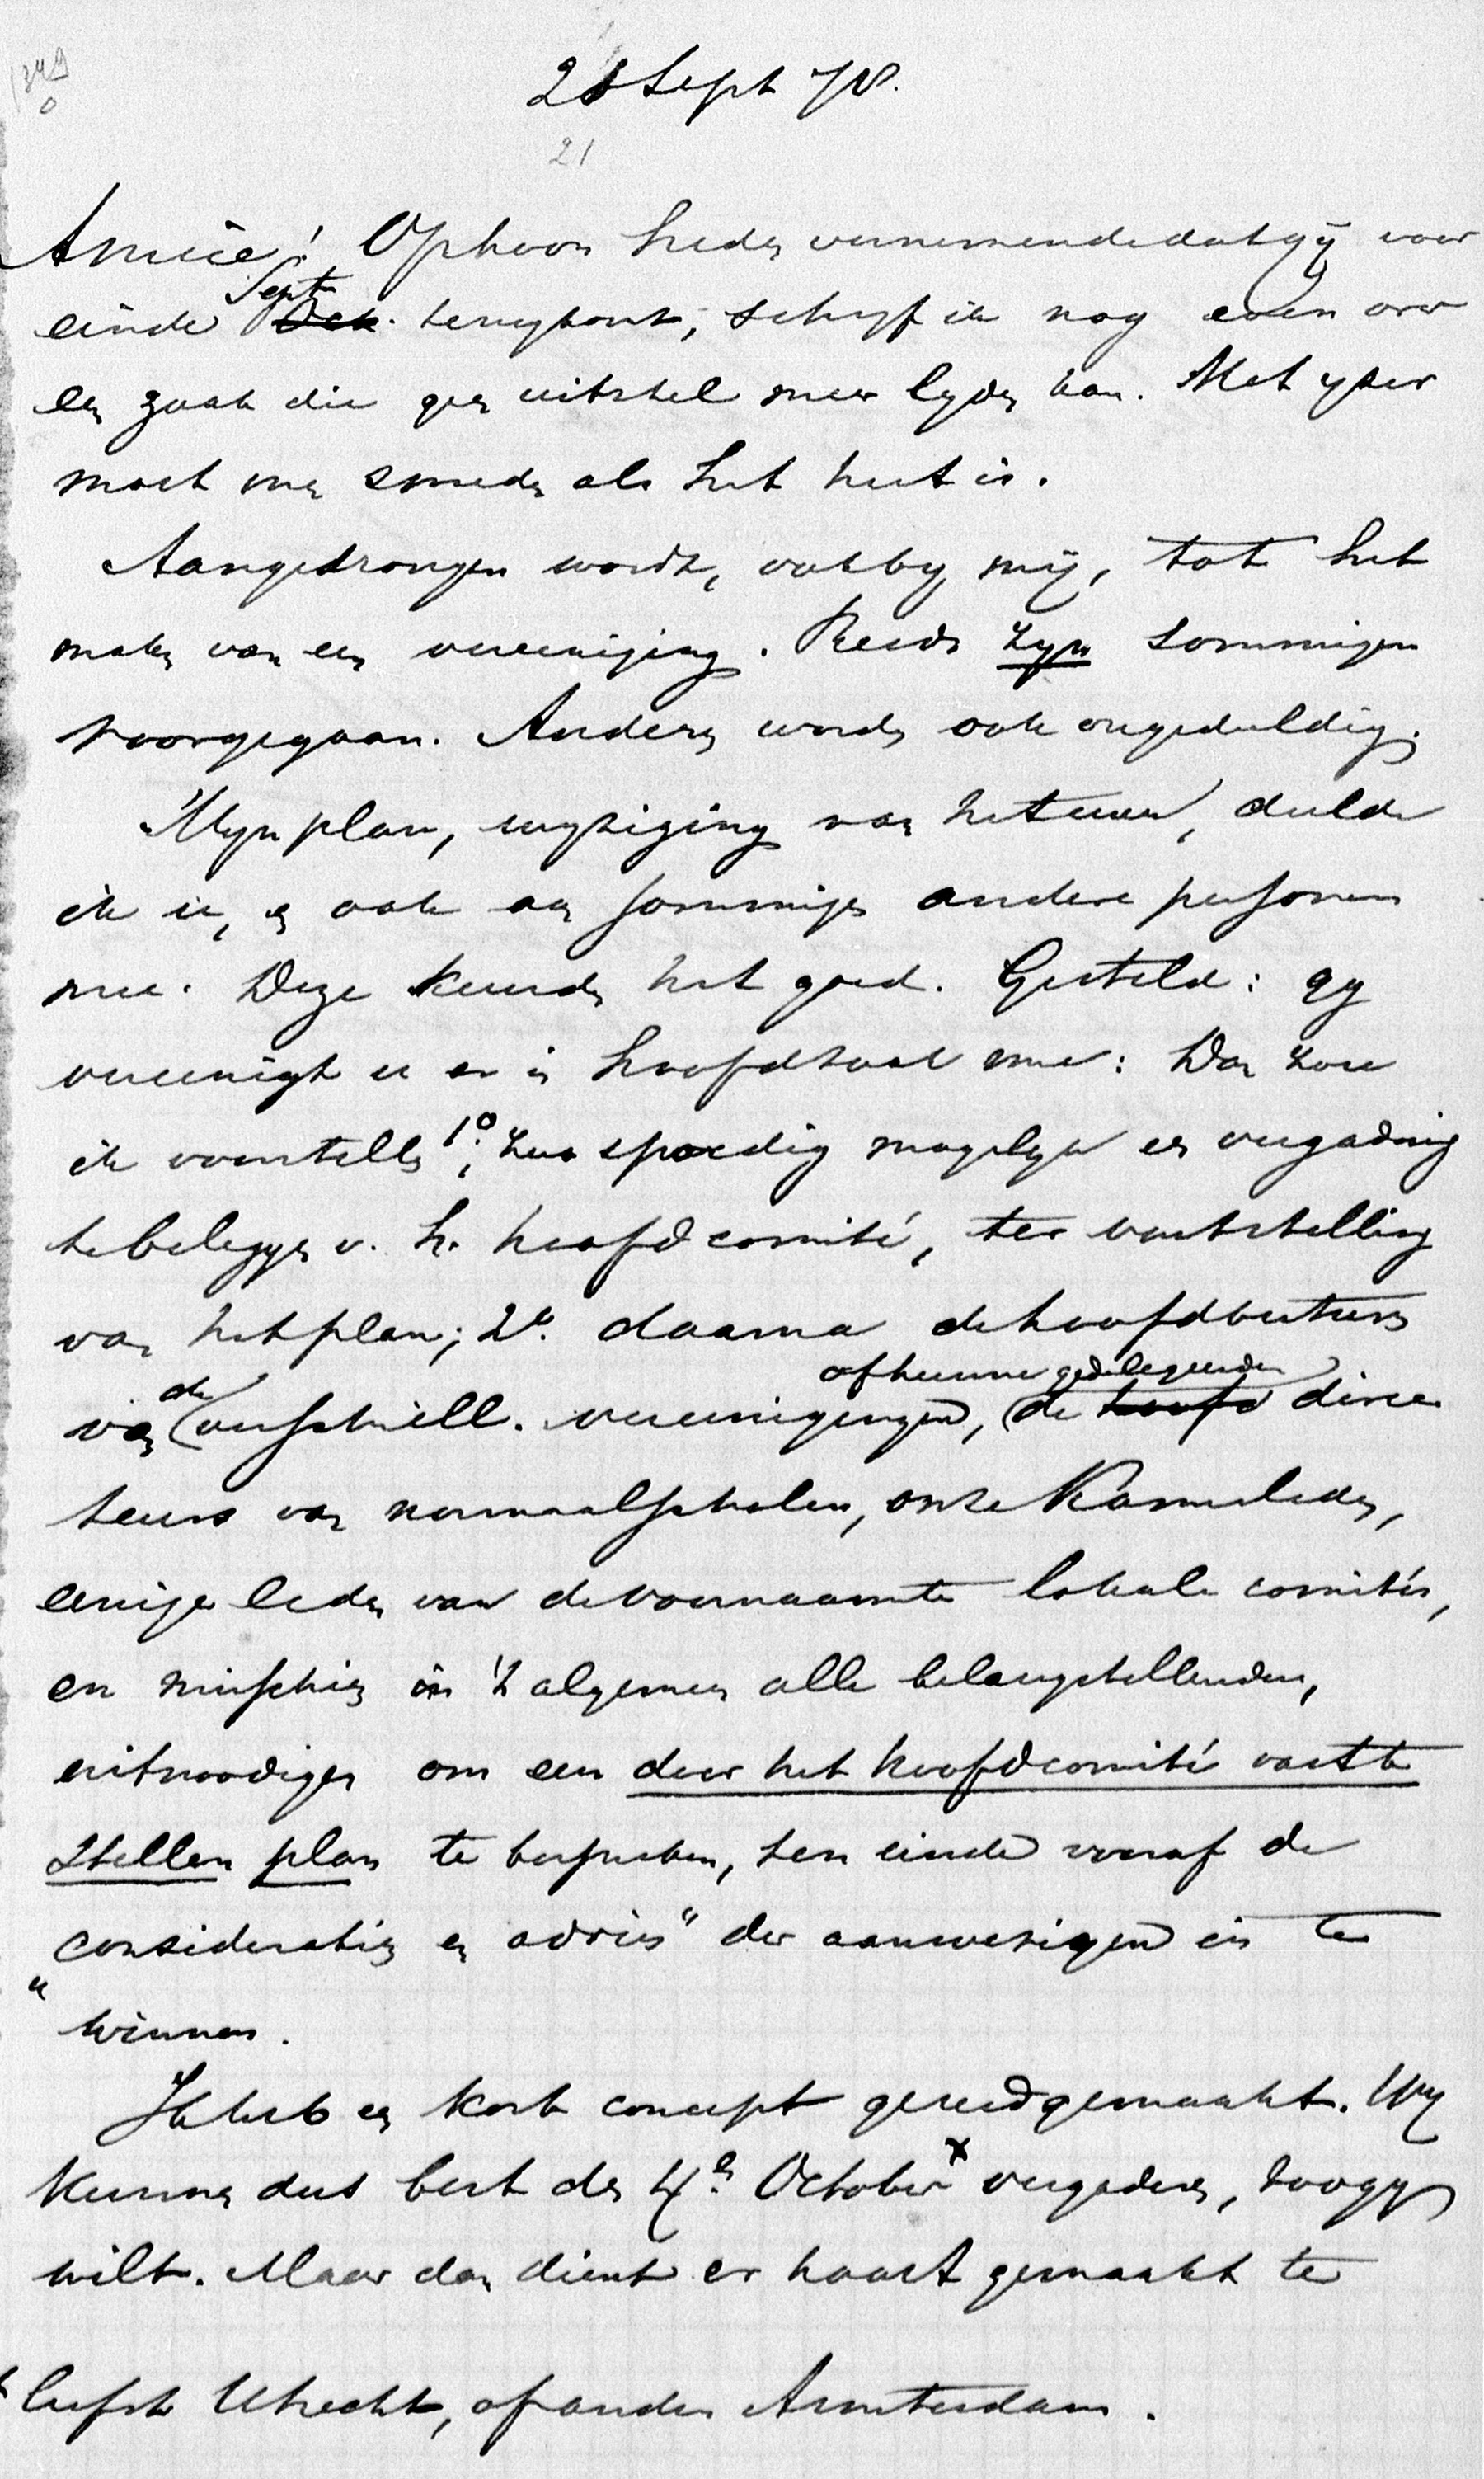 21 Sept 78.
21
Amice! Op hoon heden vernemende dat gij voor
einde Sept. Oct. terugkomt, schryf ik nog even over
een zaak die geen uitstel meer lyden kan. Met yzer
moet men smeden als het heet is.
Aangedrongen wordt, ook by mij, tot het
maken van een vereeniging. Reeds zyn sommigen
voorgegaan. Anderen worden ook ongeduldig.
Myn plan, wyziging van het uwe, deelde
ik u, en ook aan sommige andere personen
mee. Deze keurden het goed. Gesteld: gy
vereenigt u er in hoofdzaak mee: Dan zou
ik voorstellen 1o. zoo spoedig mogelyk een vergadering
te beleggen v. h. hoofdcomité, ter vaststelling
van het plan; 2o. daarna de hoofdbesturen
of hunne gedelegeerden
van de verschill. vereenigingen, de hoofd direc
teurs van normaalscholen, onze Kamerleden,
eenige leden van de voornaamste lokale comités,
en misschien in 't algemeen alle belangstellenden,
uitnoodigen om een door het hoofdcomité vast te
stellen plan te bespreken, ten einde vooraf de
"consideratien en advies" der aanwezigen in te
winnen.
Ik heb een kort concept gereedgemaakt. Wy
kunnen dus best den 4en October x vergaderen, zoo gy
wilt. Maar dan dient er haast gemaakt te
x liefst Utrecht, of anders Amsterdam.